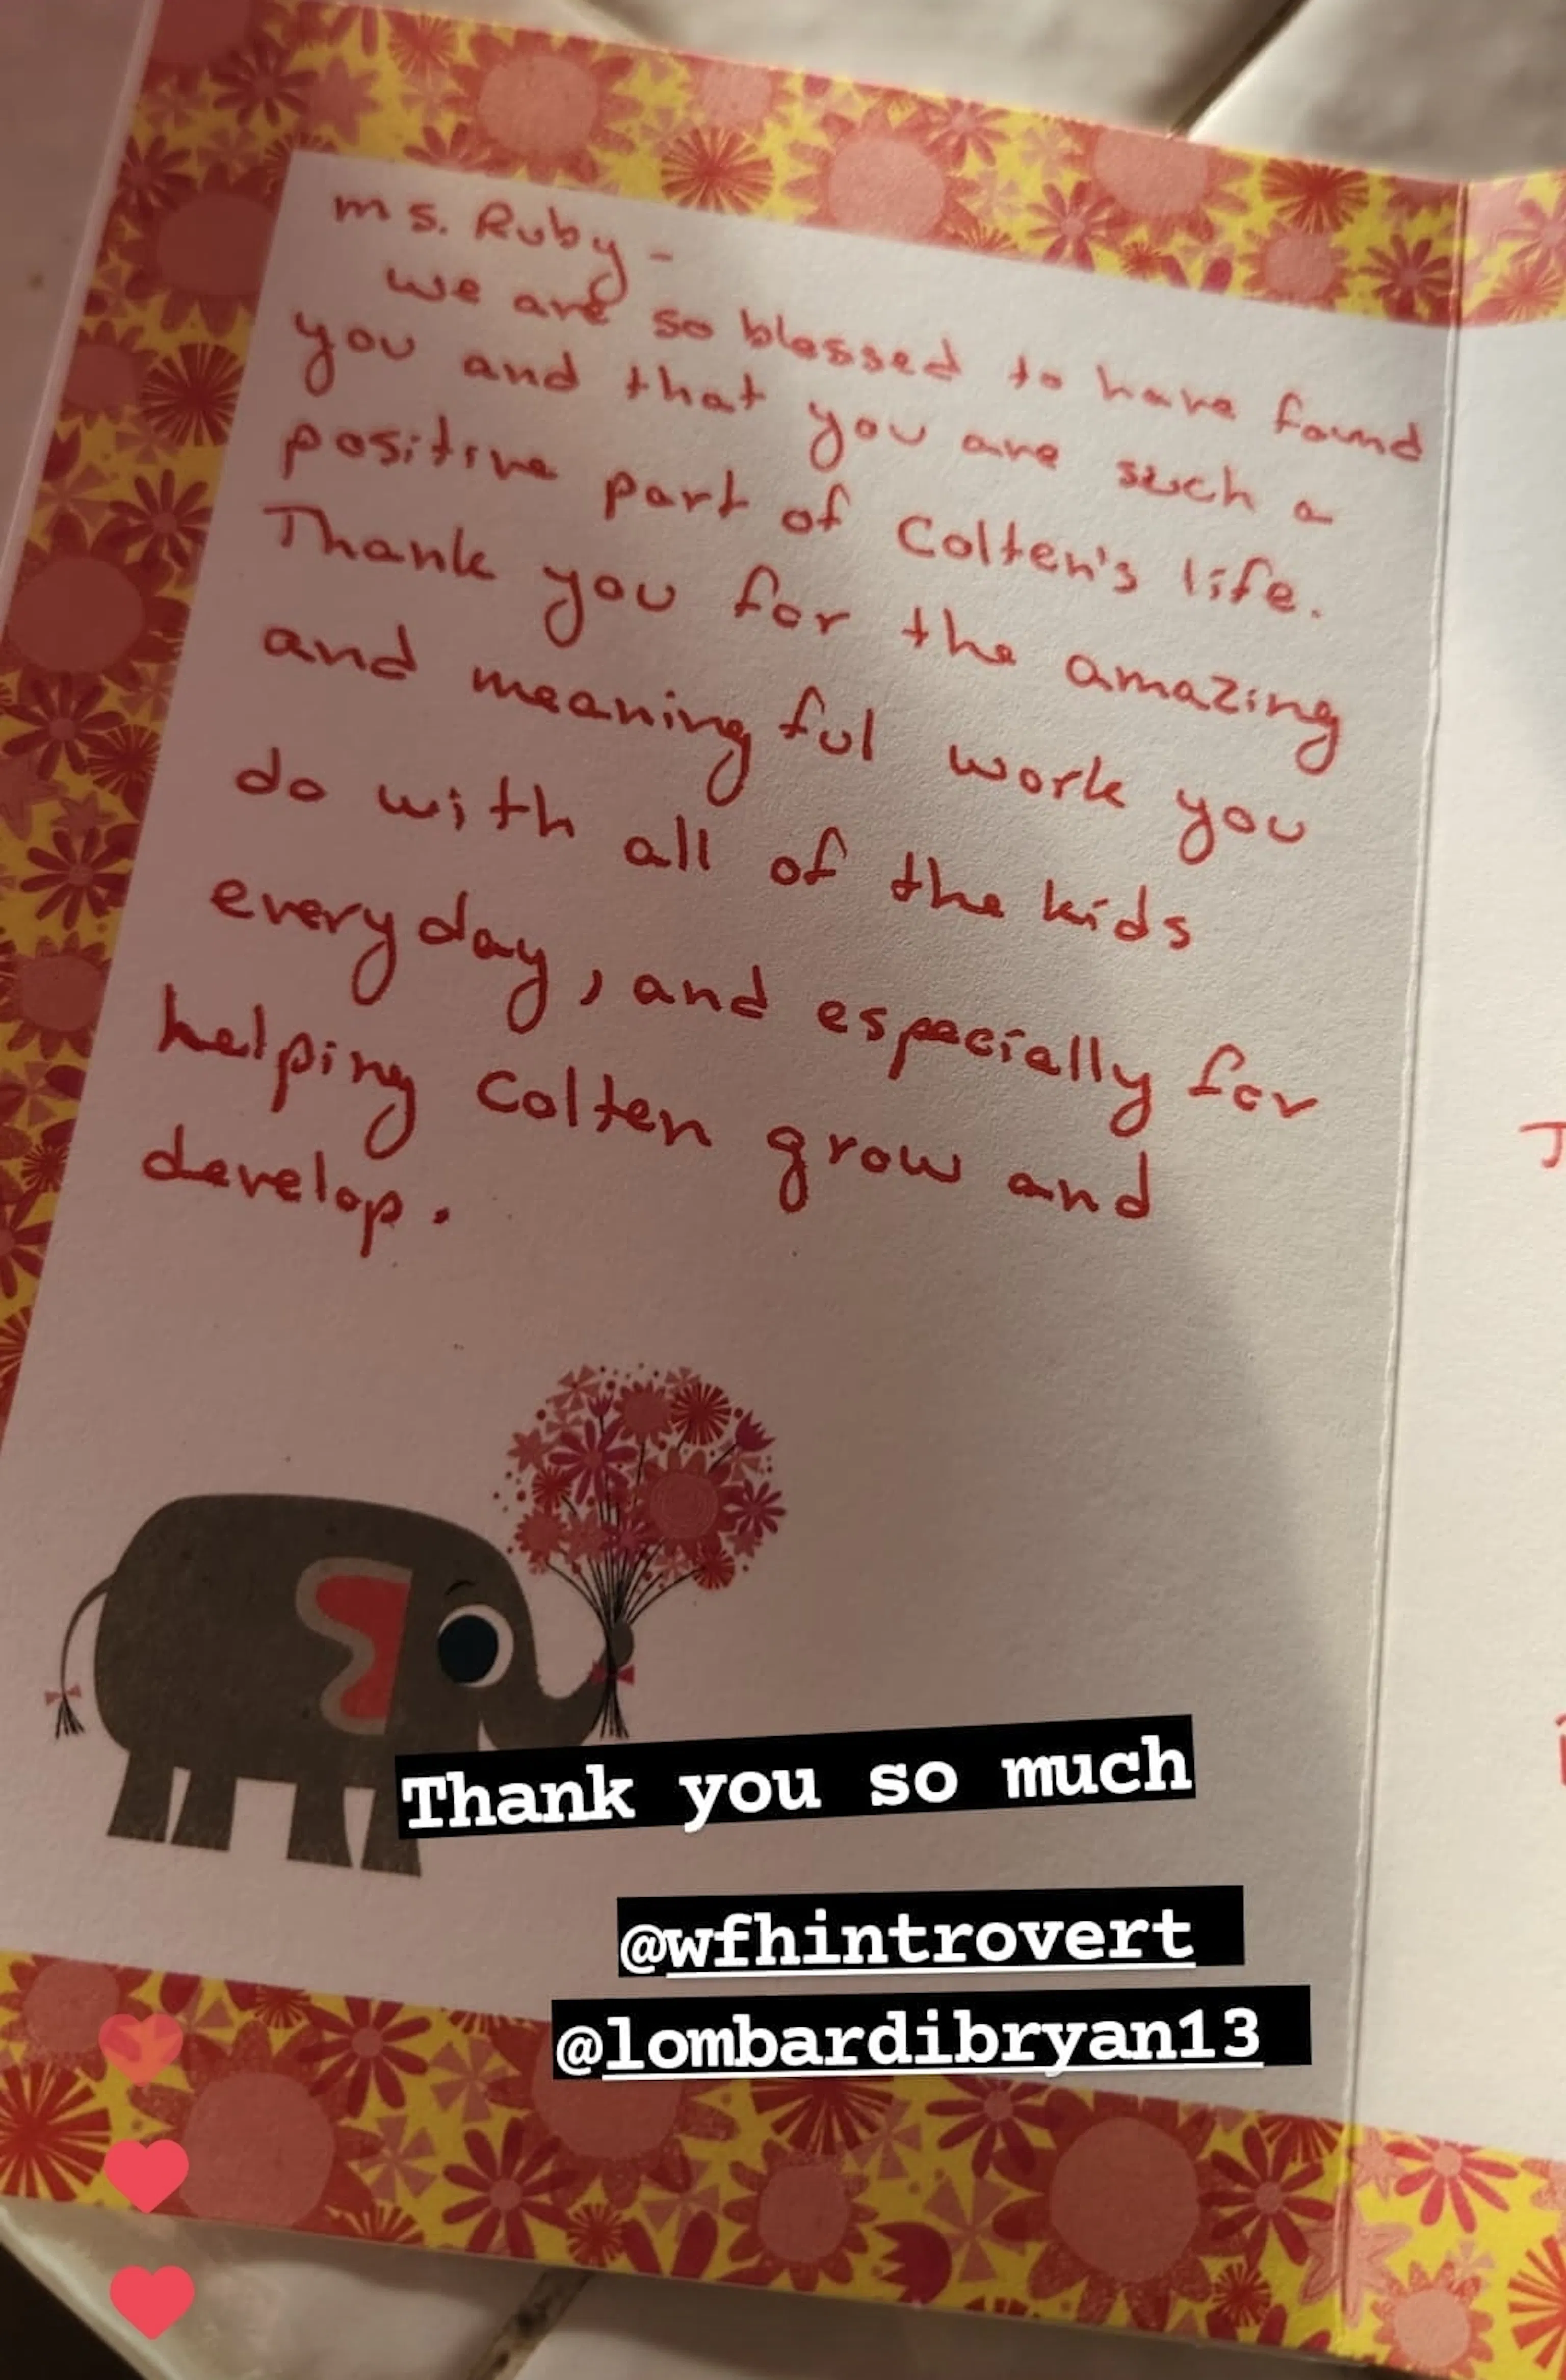 ms. Ruby -
we are so blessed to have found
you and that you are such a
positive part of Colten's life.
Thank you for the amazing
and meaningful work you
do with all of the kids
everyday, and especially for
helping Colten grow and
develop.
Thank you so much
@wfhintrovert
@lombardibryan13